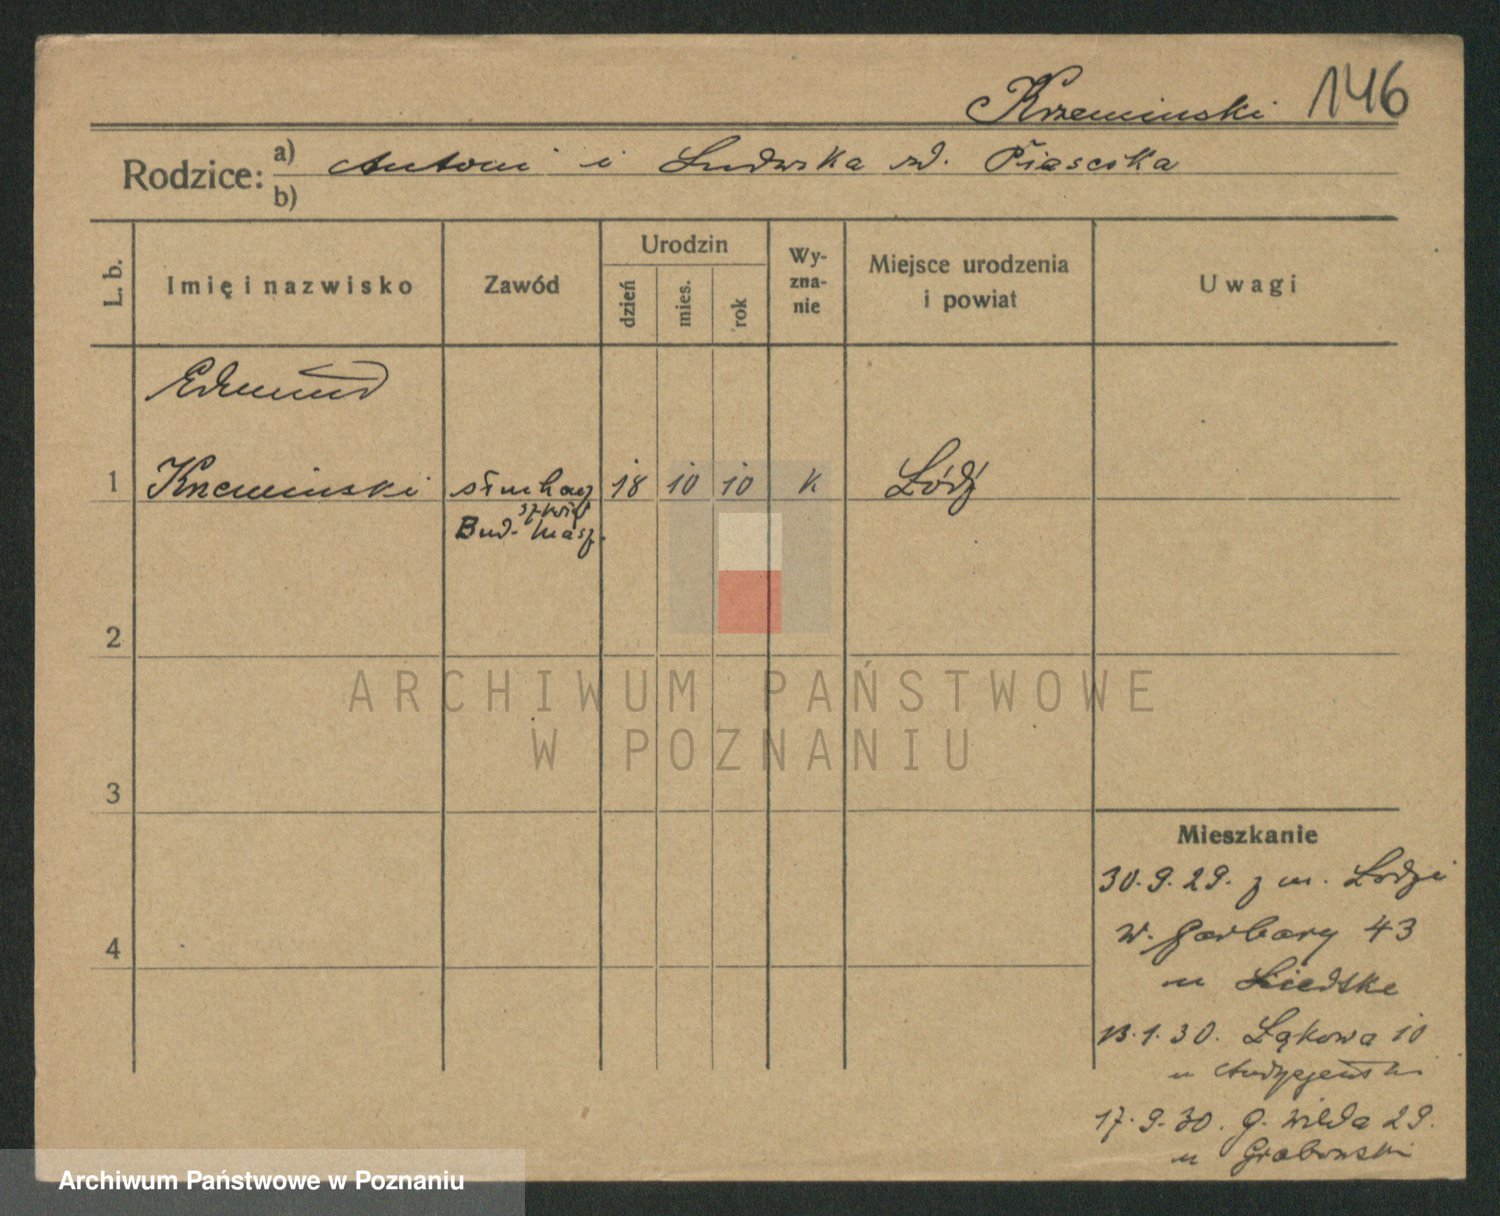 Krzeminski 146
Rodzice: a) Antoni i Ludwika zd. Piasecka
b)
L. b. Imię i nazwisko Zawód Urodzin dzień mies. rok Wy-zna-nie Miejsce urodzenia i powiat Uwagi
Edmund
1 Krzeminski słuchacz 18 10 10 k Łódź
Bud. Masz.
2
ARCHIWUM PAŃSTWOWE
W POZNANIU
3
Mieszkanie
30.9.29. z m. Lodzi
4
W. Garbary 43
u
13.1.30. Łąkowa 10
u
17.9.30. G. Wilda 29.
u Grabowski
Archiwum Państwowe w Poznaniu